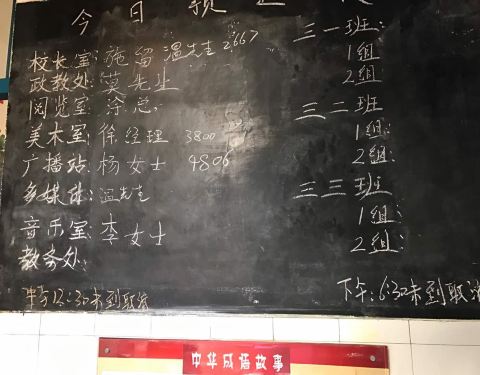 今日预
校长室: 施留 温先生 2667
政教处: 莫先生
阅览室: 涂总
美术室: 徐经理 3800
广播站: 杨女士 4806
多媒体: 温先生
音乐室: 李女士
教务处:
中午12:30未到取消
三一班:
1组:
2组:
三二班
1组:
2组:
三三班
1组:
2组:
下午:6:30未到取消
中华成语故事